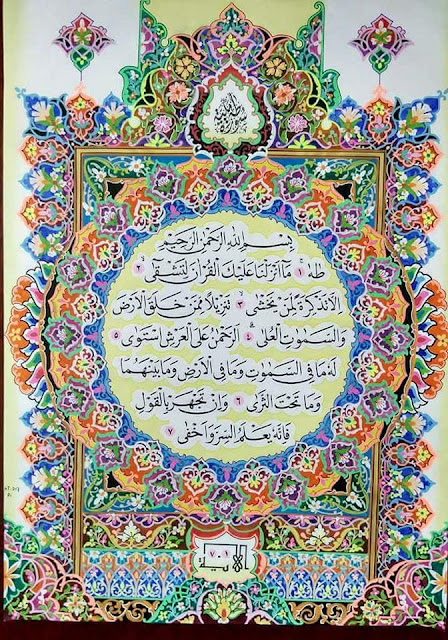 بِسْمِ اللهِ الرَّحْمٰنِ الرَّحِيْمِ
طٰهٰ ١ مَآ اَنْزَلْنَا عَلَيْكَ الْقُرْاٰنَ لِتَشْقٰٓى ٢
اِلَّا تَذْكِرَةً لِّمَنْ يَّخْشٰى ٣ تَنْزِيْلًا مِّمَّنْ خَلَقَ الْاَرْضَ
وَالسَّمٰوٰتِ الْعُلٰى ٤ اَلرَّحْمٰنُ عَلَى الْعَرْشِ اسْتَوٰى ٥
لَهٗ مَا فِى السَّمٰوٰتِ وَمَا فِى الْاَرْضِ وَمَا بَيْنَهُمَا
وَمَا تَحْتَ الثَّرٰى ٦ وَاِنْ تَجْهَرْ بِالْقَوْلِ
فَاِنَّهٗ يَعْلَمُ السِّرَّ وَاَخْفٰى ٧
الآية ٧.١